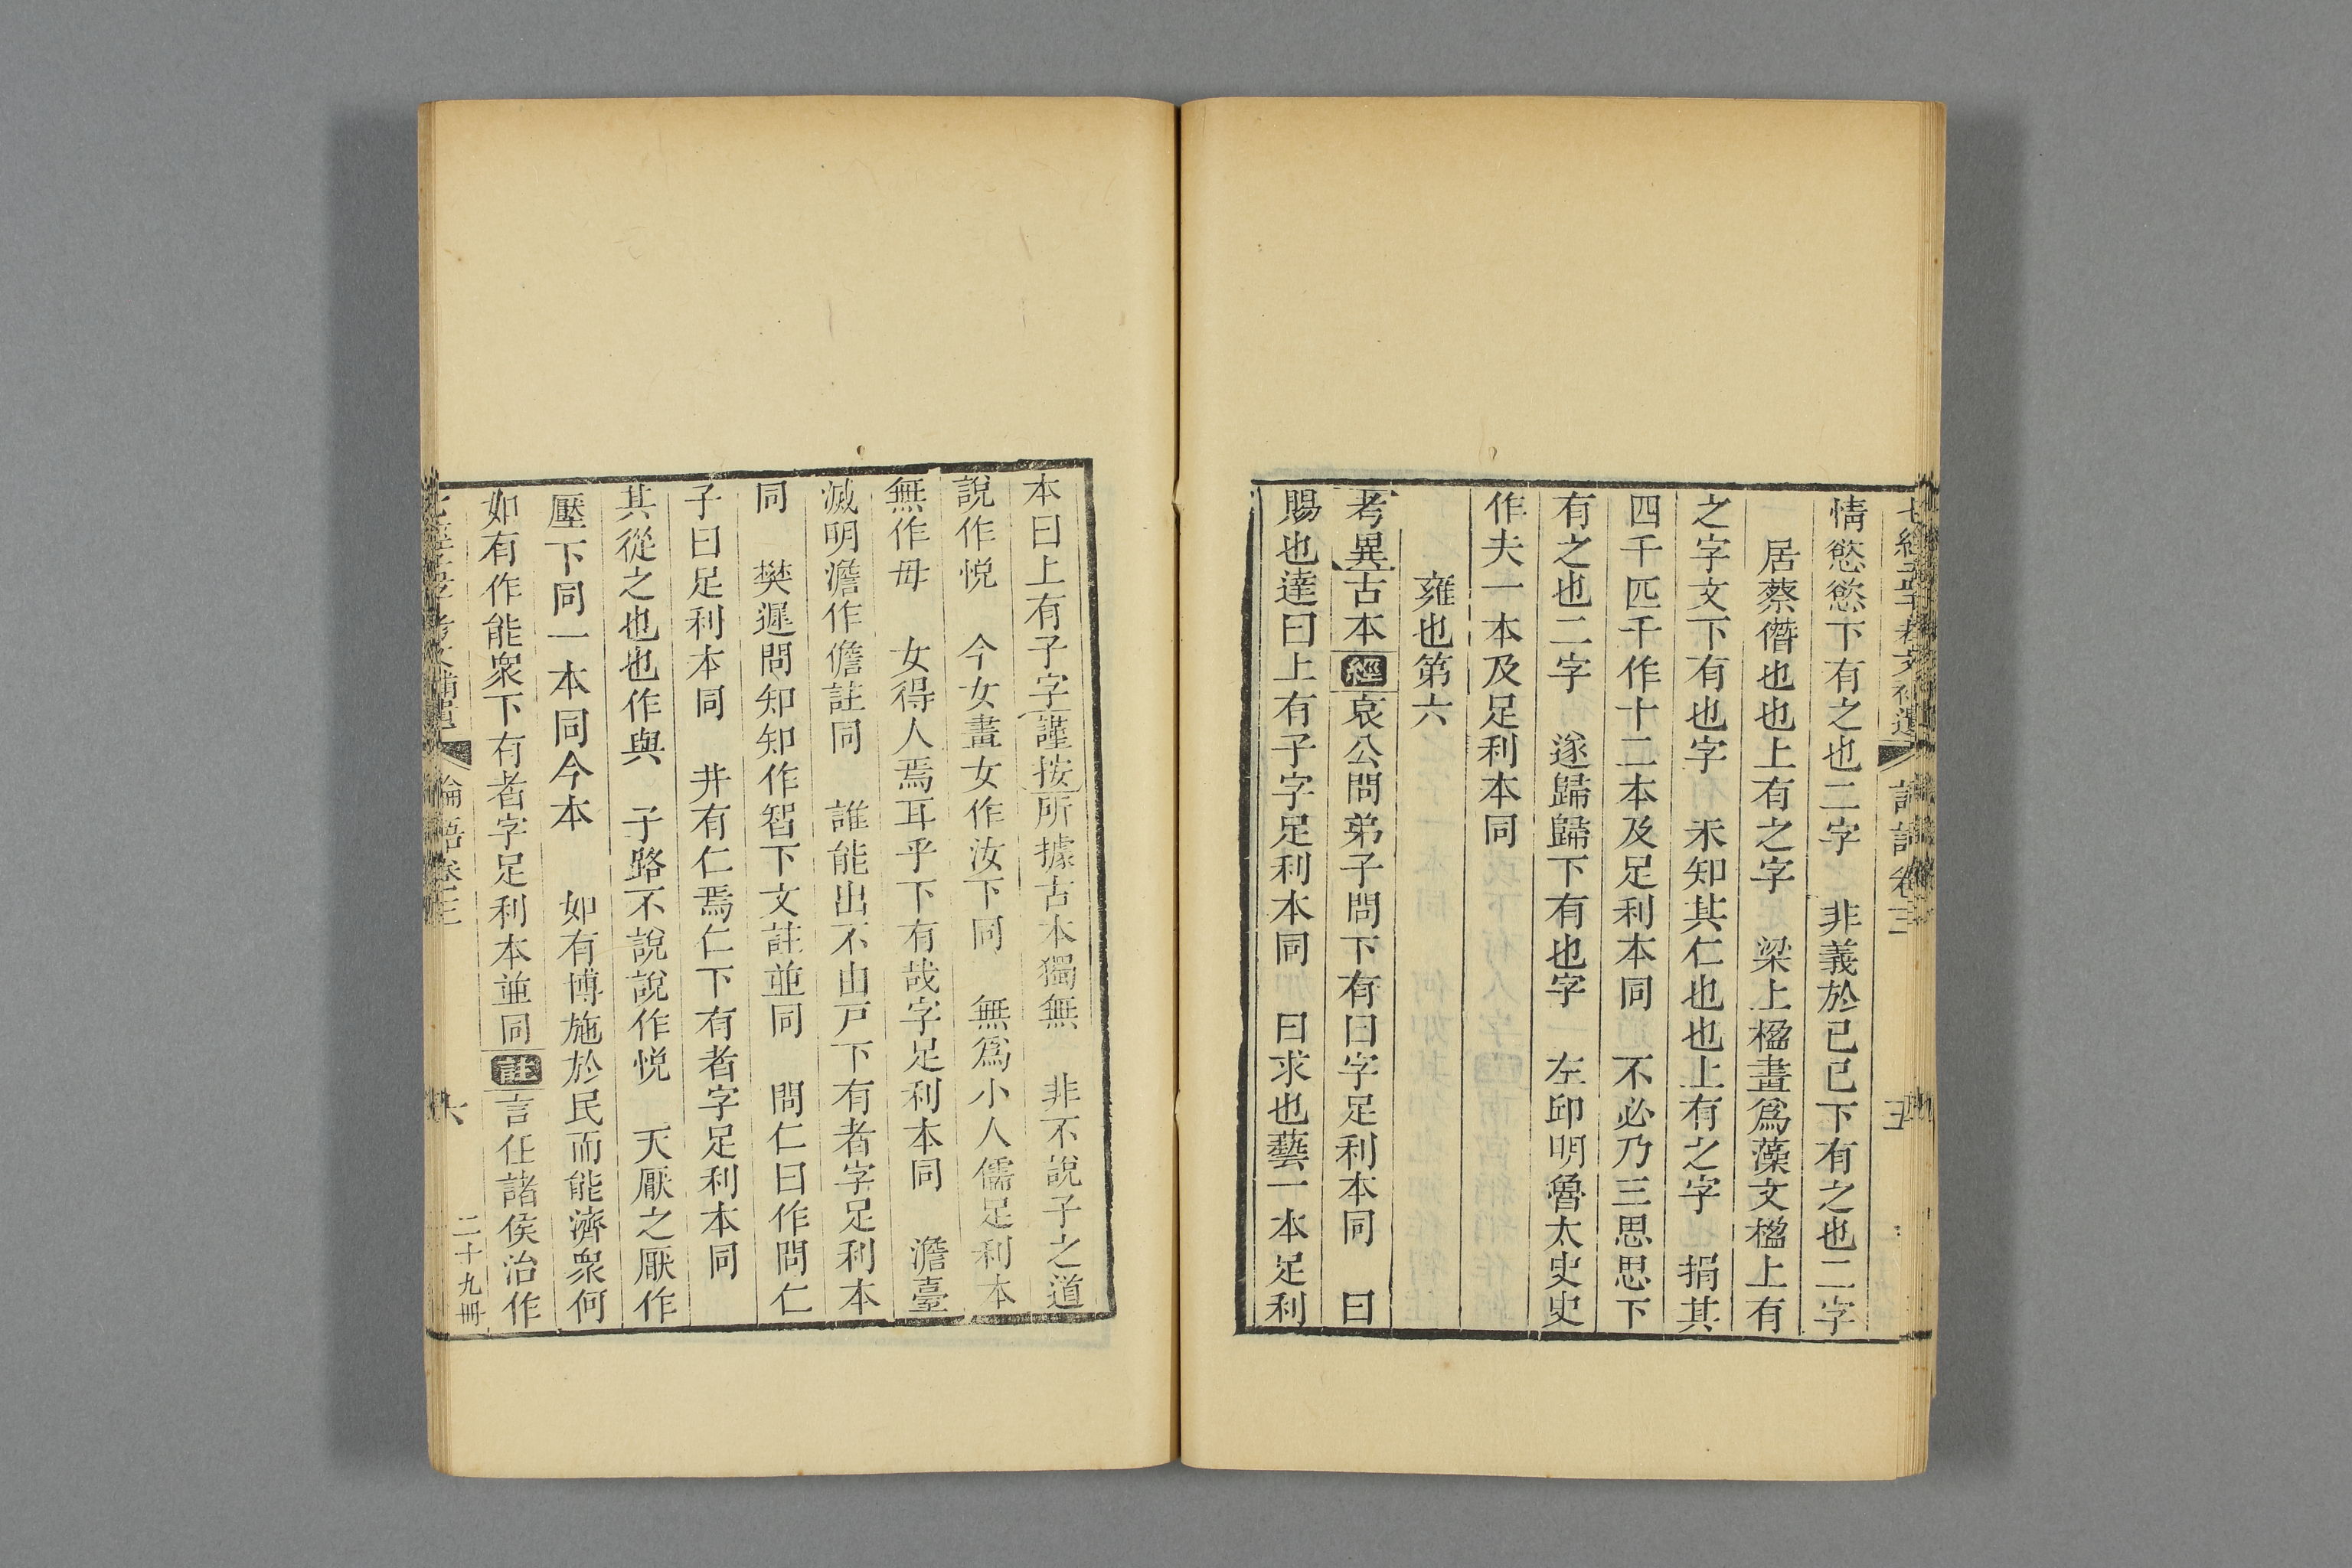 情慾慾下有之也二字　非義於已已下有之也二字
居蔡僭也也上有之字　梁上楹畫爲藻文楹上有
之字文下有也字　未知其仁也也上有之字　捐其
四千匹千作十二本及足利本同　不必乃三思思下
有之也二字　遂歸歸下有也字　左邱明魯太史史
作夫一本及足利本同
雍也第六
考異古本經哀公問弟子問下有曰字足利本同　曰
賜也達曰上有子字足利本同　曰求也藝一本足利
本曰上有子字謹按所據古本獨無　非不說子之道
說作悅　今女畫女作汝下同　無爲小人儒足利本
無作毋　女得人焉耳乎下有哉字足利本同　澹臺
滅明澹作儋註同　誰能出不由戸下有者字足利本
同　樊遲問知知作智下文註並同　問仁曰作問仁
子曰足利本同　井有仁焉仁下有者字足利本同
其從之也也作與　子路不說說作悅　天厭之厭作
壓下同一本同今本　如有博施於民而能濟衆何
如有作能衆下有者字足利本並同註言任諸侯治作
論語卷三
六
二十九冊